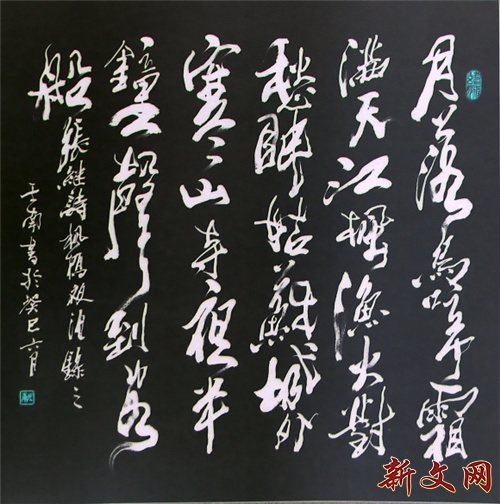 月落烏啼霜
滿天江楓漁火對
愁眠姑蘇城外
寒山寺夜半
鐘聲到客
船 張繼詩楓橋夜泊錄之
南書於癸巳六月
新文网